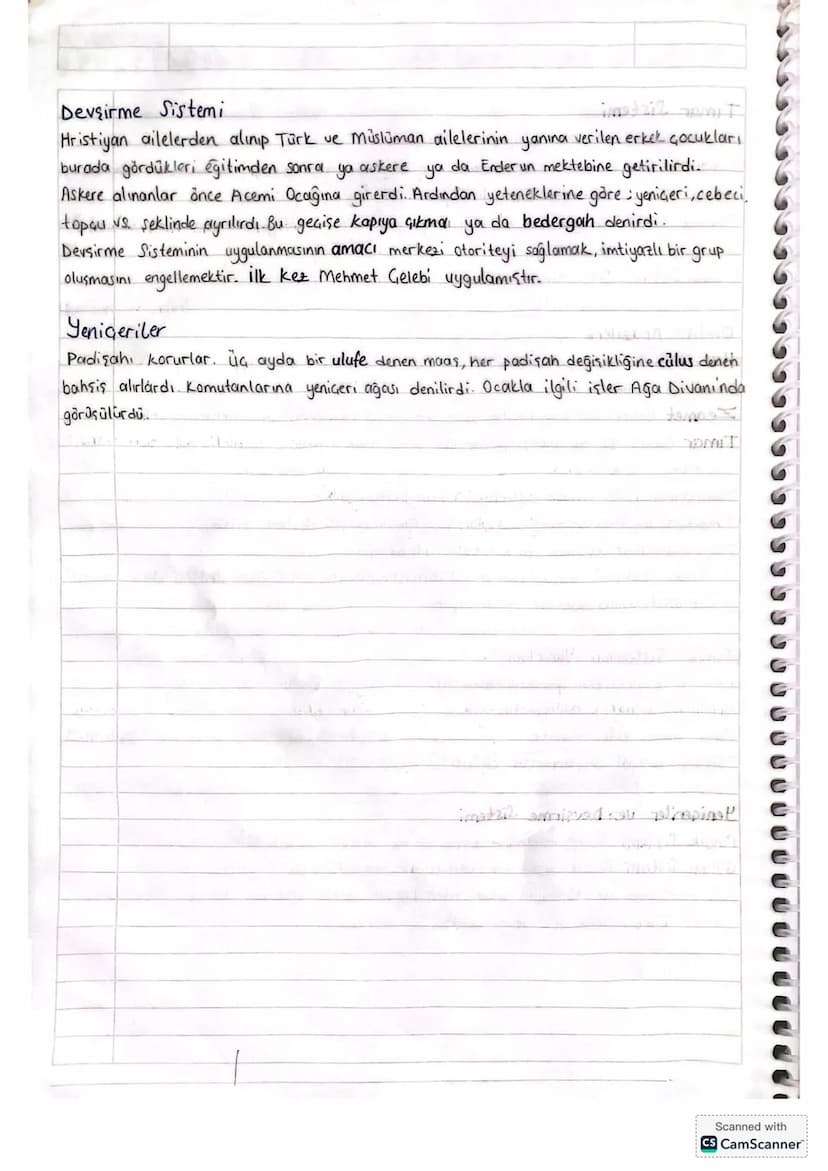 Devşirme Sistemi
Hristiyan ailelerden alınıp Türk ve Müslüman ailelerinin yanına verilen erkek çocukları
burada gördükleri eğitimden sonra ya askere ya da Enderun mektebine getirilirdi.
Askere alınanlar önce Acemi Ocağına girerdi. Ardından yeteneklerine göre ; yeniçeri, cebeci,
topçu vs. şeklinde ayrılırdı. Bu geçişe kapıya çıkma ya da bedergah denirdi.
Devşirme Sisteminin uygulanmasının amacı merkezi otoriteyi sağlamak, imtiyazlı bir grup
oluşmasını engellemektir. İlk kez Mehmet Çelebi uygulamıştır.
Yeniçeriler
Padişahı korurlar. Üç ayda bir ulufe denen maaş, her padişah değişikliğine cülus denen
bahşiş alırlardı. Komutanlarına yeniçeri ağası denilirdi. Ocakla ilgili işler Ağa Divanı'nda
görüşülürdü.
Scanned with
CS CamScanner